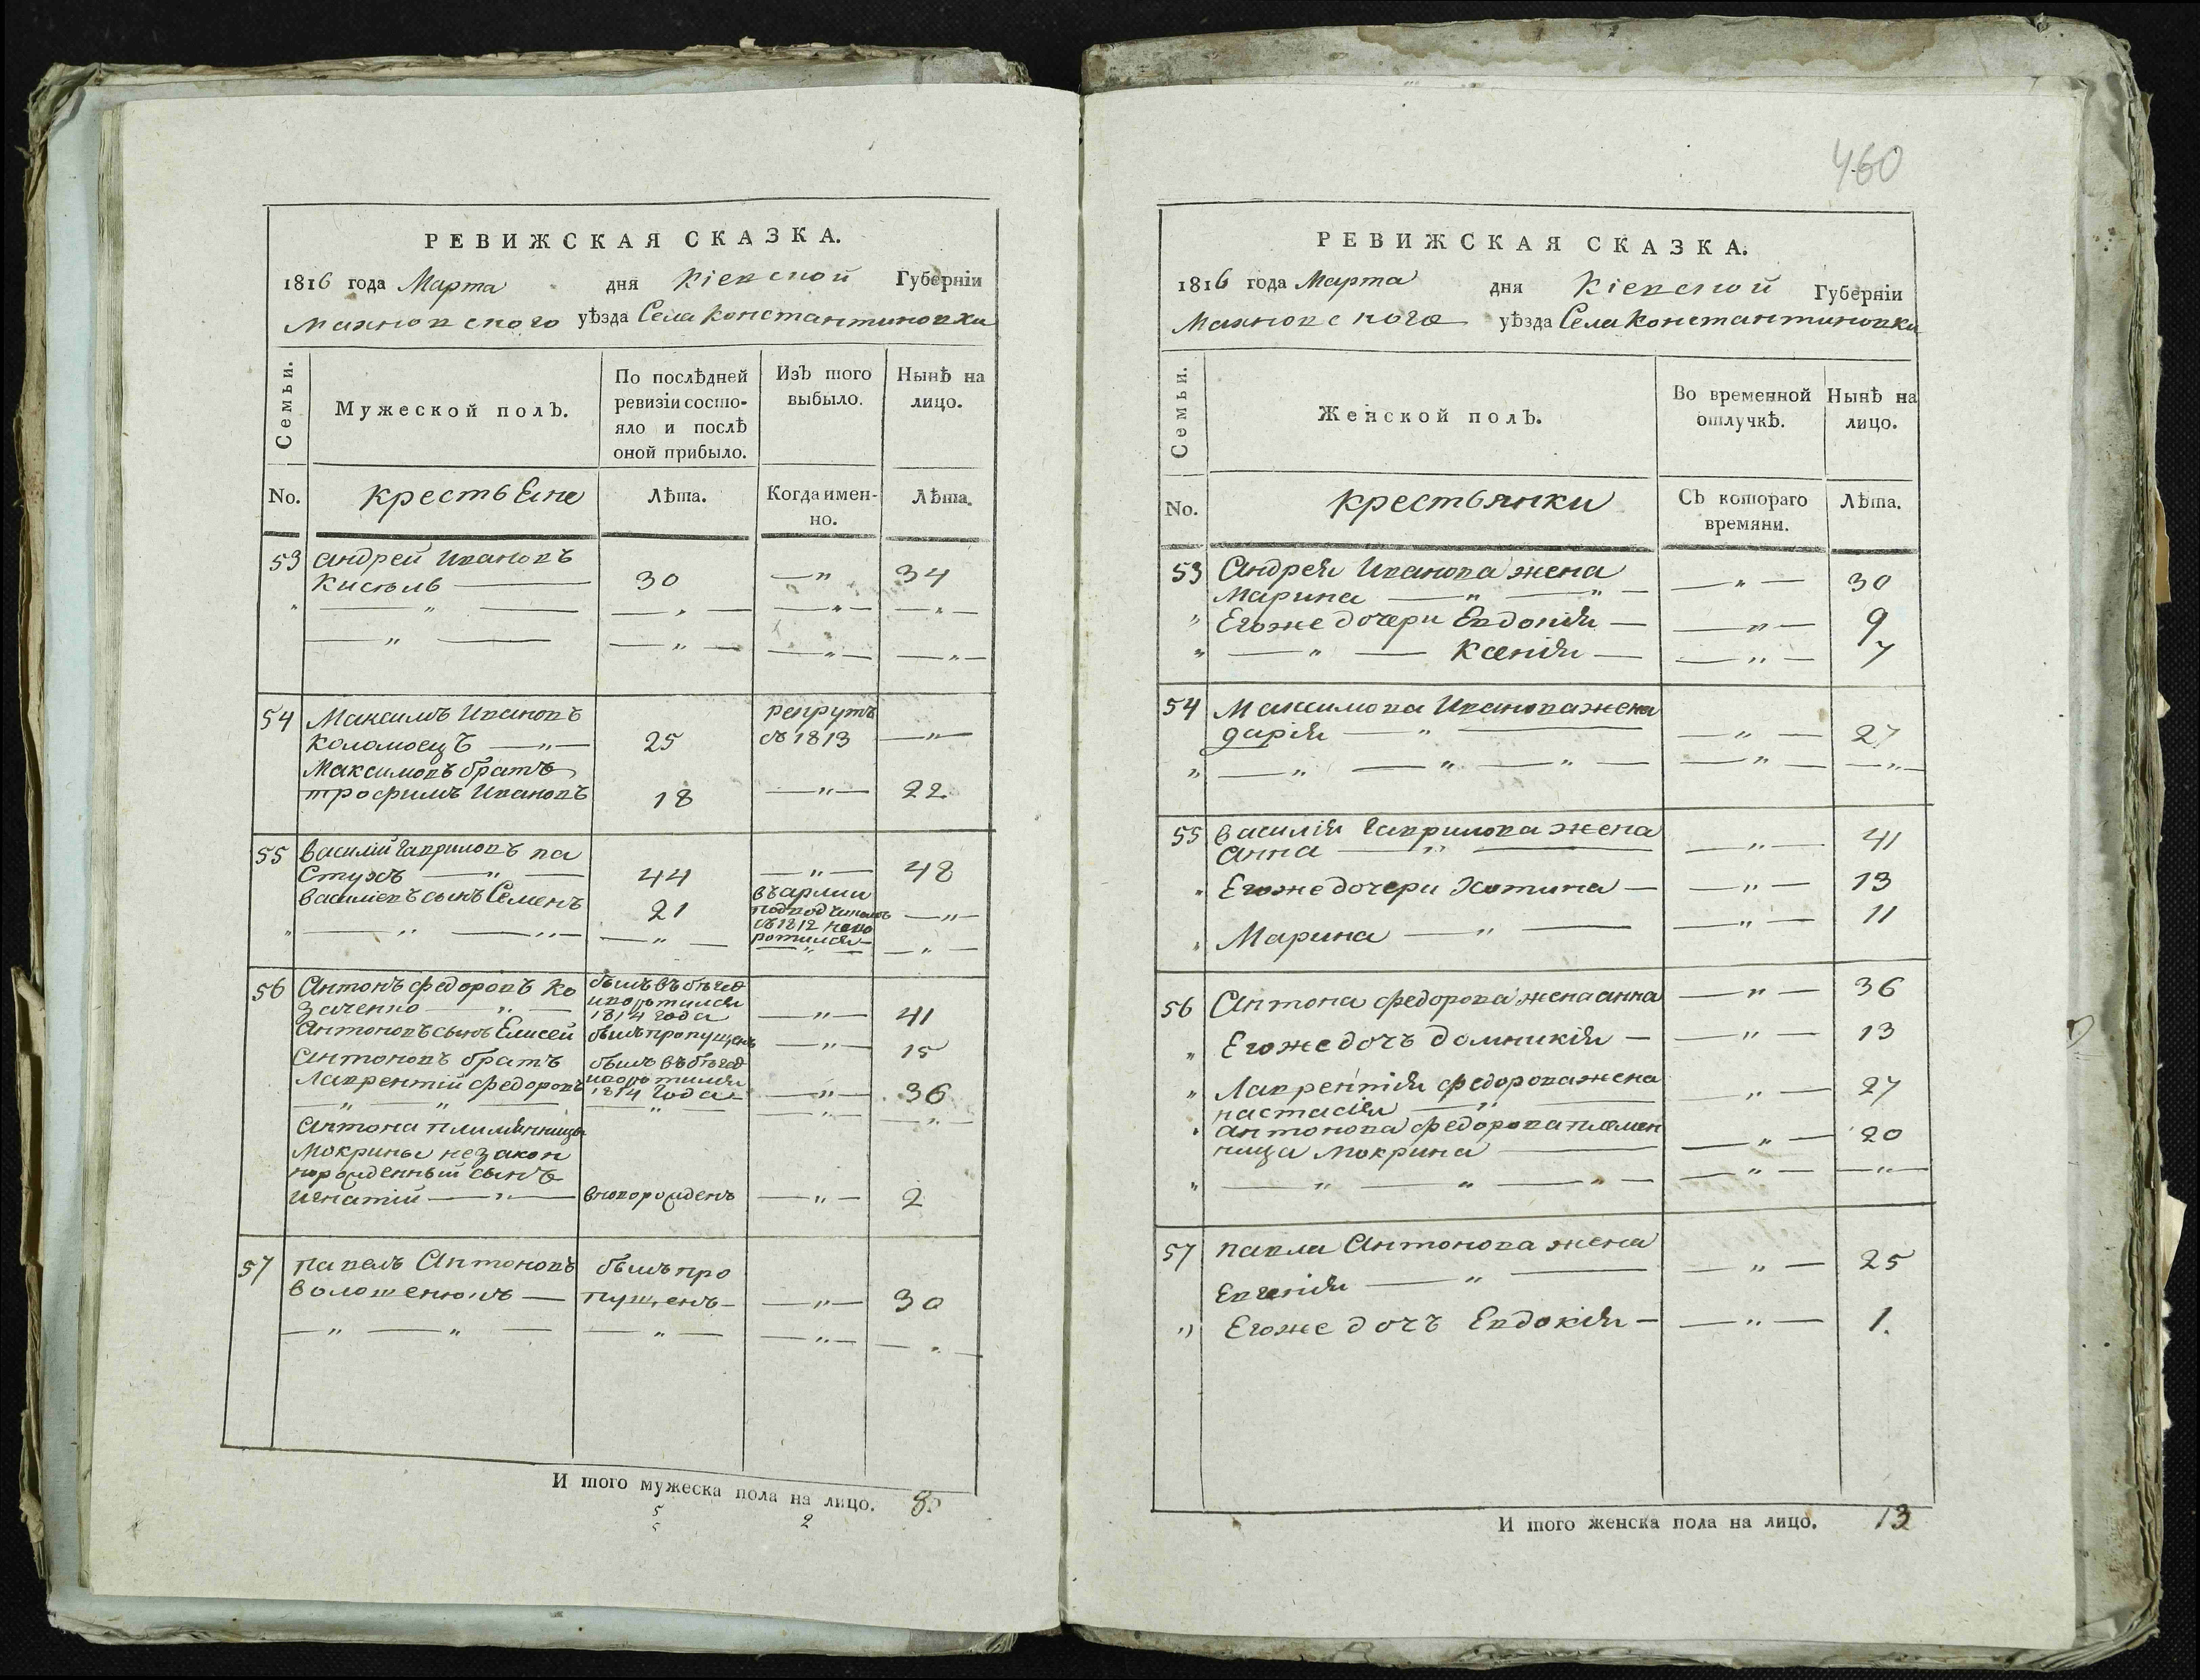 РЕВИЖСКАЯ СКАЗКА.
1816 года Марта дня Кіевской Губерніи
Махновского уѣзда Села Константиновки
Семьи.
Мужеской полъ.
По послѣдней
ревизіи состо-
яло и послѣ
оной прибыло.
Изъ того
выбыло.
Нынѣ на
лицо.
No. крестьяне Лѣта. Когда имен-
но.
Лѣта.
53 Андрей Ивановъ
Кисѣль — 30 — " 34
" — " — — " — — " — — " —
— " — — " — — " — — " —
54 Максимъ Ивановъ рекрутъ
коломоецъ — " — 25 съ 1813 — " —
Максимовъ братъ
трофимъ Ивановъ 18 — " — 22
55 василій гавриловъ па
стухъ — " — 44 — " — 48
василіевъ сынъ Семенъ 21 въ армии
съ 1812 — " —
" — " — " — — " — — " — — " —
56 Антонъ федоровъ ко былъ въ бѣгах
заченко — " — 1814 года — " — 41
Антоновъ сынъ Елисей былъ пропущенъ — " — 15
Антоновъ братъ былъ въ бѣгах
Лаврентій федоровъ 1814 года — " — 36
— " — " — — " — — " — — " —
Антона плимянницы
Мокрины незакон
норожденный сынъ
игнатій — " — вноворожденъ — " — 2
57 павелъ Антоновъ былъ про
волошенюкъ — пущенъ — — " — 30
— " — " — — " — — " — — " —
И того мужеска пола на лицо. 8.
5 2
5
460
РЕВИЖСКАЯ СКАЗКА.
1816 года Марта дня Кіевской Губерніи
Махновского уѣзда Села Константиновки
Семьи.
Женской полъ.
Во временной
отлучкѣ.
Нынѣ на
лицо.
No. крестьянки Съ котораго
времяни.
Лѣта.
53 Андрея Иванова жена
Марина — " — " — — " — 30
" Егоже дочери Евдокія — — " — 9
" — " — Ксенія — — " — 7
54 Максимова Иванова жена
дарія — " — — " — 27
" — " — " — " — — " — — " —
55 василія гаврилова жена
Анна — " — — " — 41
" Егоже дочери Хотина — — " — 13
" Марина — " — — " — 11
56 Антона федорова жена анна — " — 36
" Егоже дочъ домникія — — " — 13
" Лаврентія федорова жена
настасія — " — — " — 27
" антонова федорова племен
ница мокрина — — " — 20
" — " — " — " — — " — — " —
57 павла Антонова жена
Евгенія — " — — " — 25
" Егоже дочъ Евдокія — — " — 1.
И того женска пола на лицо. 13